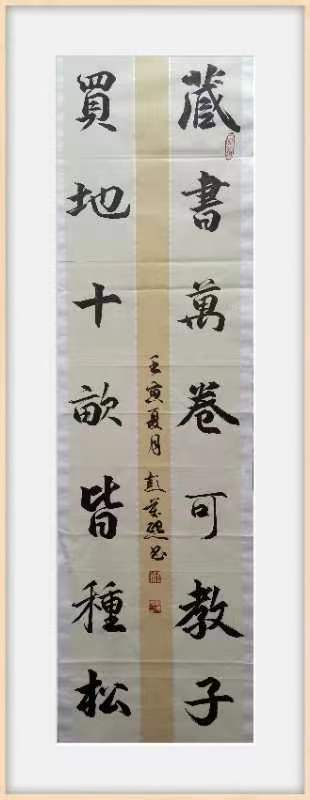 藏書萬卷可教子
買地十畝皆種松
壬寅夏月 彭 書